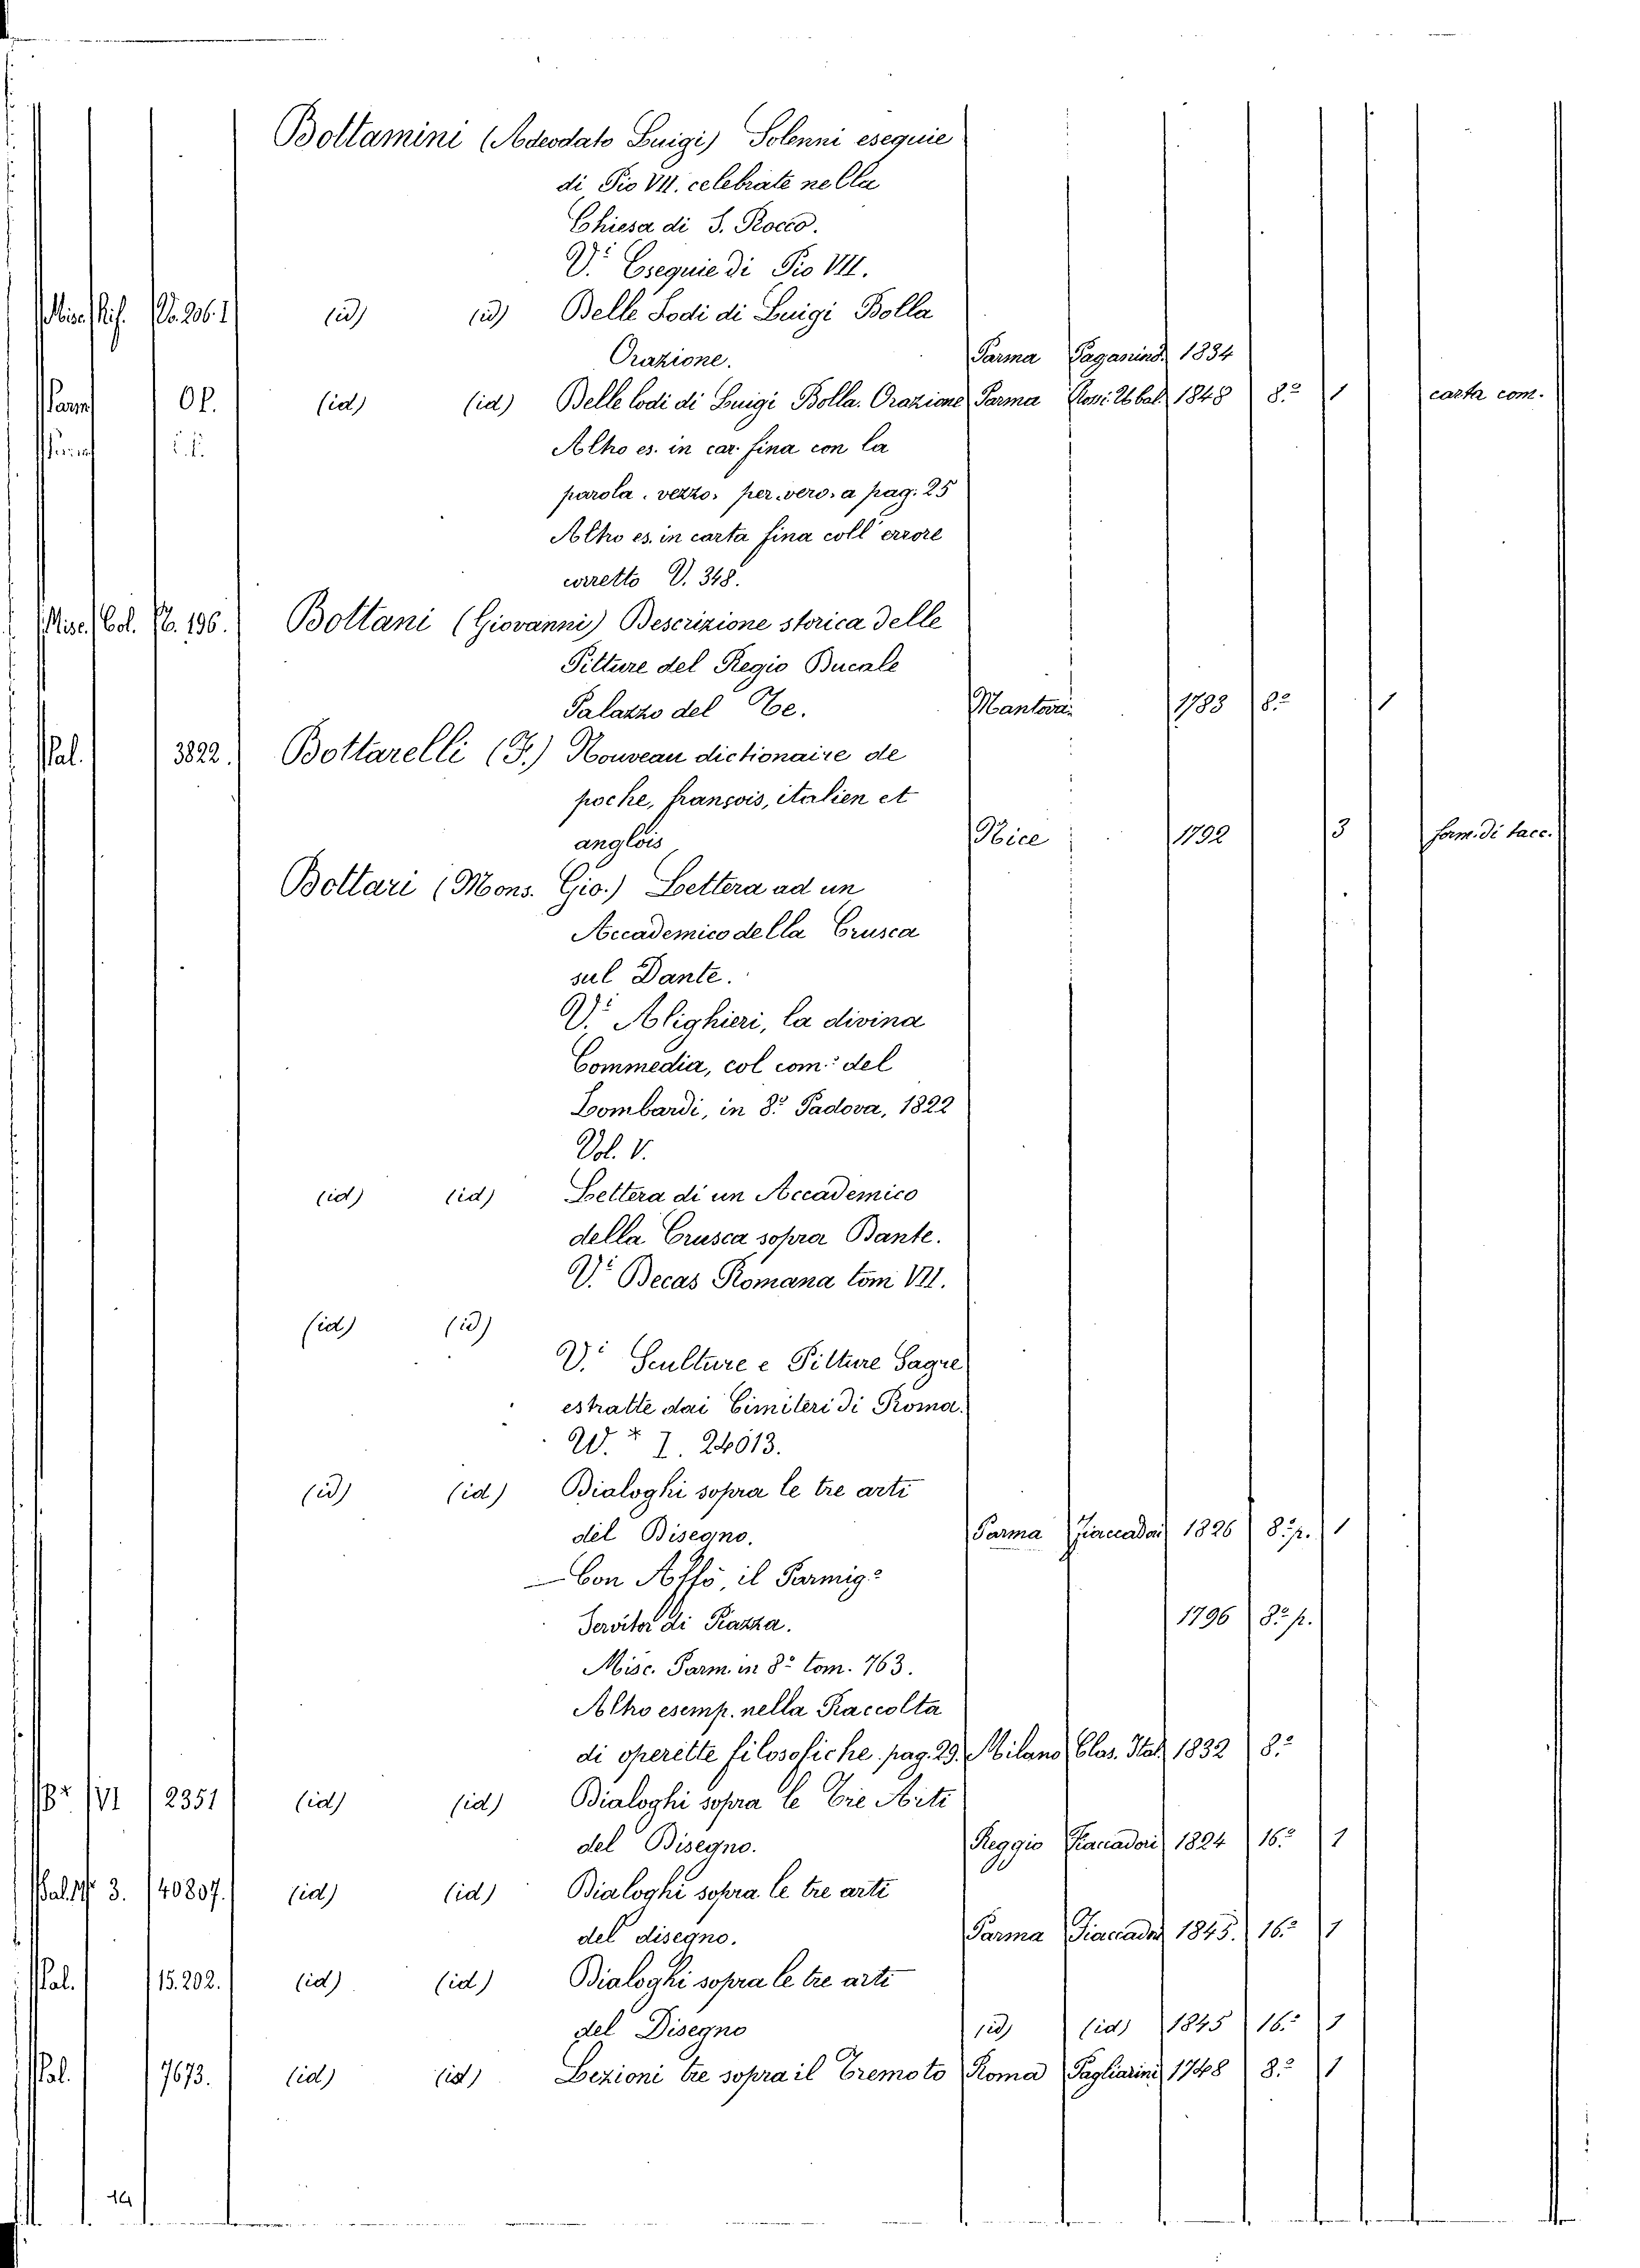 Bottamini (Adeodato Luigi) Solenni esequie
di Pio VII. celebrate nella
Chiesa di S. Rocco.
V.i Esequie di Pio VII.
Misc. No. 206.1 (id) (id) Delle Lodi di Luigi Bolla
Orazione. Parma Paganino 1834
Parm OP. (id) (id) Delle lodi di Luigi Bolla. Orazione Parma Rossi Ubal 1848 8.o 1 carta com.
Altro es. in car. fina con la
parola. vezzo. per. vero. a pag. 25
Altro es. in carta fina coll' errore
corretto V. 348.
Misc. Col. No. 196. Bottani (Giovanni) Descrizione storica delle
Pitture del Regio Ducale
Palazzo del Te. Mantova 1783 8.o 1
Pal. 3822. Bottarelli (F.) Nouveau dictionaire de
poche, françois, italien et
anglois Nice 1792 3 form. di tacc.
Bottari (Mons. Gio.) Lettera ad un
Accademico della Crusca
sul Dante.
V.i Alighieri, la divina
Commedia, col com.o del
Lombardi, in 8.o Padova, 1822
Vol. V.
(id) (id) Lettera di un Accademico
della Crusca sopra Dante.
V.i Decas Romana tom VII.
(id) (id)
V.i Sculture e Pitture Sagre
estratte dai Cimiteri di Roma.
W. * I. 24013.
(id) (id) Dialoghi sopra le tre arti
del Disegno. Parma Fiaccador 1826 8.o p. 1
— Con Affò, il Parmig.o
Servitor di Piazza. 1796 8.o p.
Misc. Parm. in 8.o tom. 763.
Altro esemp. nella Raccolta
di operette filosofiche pag. 29. Milano Clas. Ital 1832 8.o
VI 2351 (id) (id) Dialoghi sopra le Tre Arti
del Disegno. Reggio Fiaccadori 1824 16.o 1
Pal. 3. 40807. (id) (id) Dialoghi sopra le tre arti
del disegno. Parma Fiaccador 1845. 16.o 1
Pal. 15.202. (id) (id) Dialoghi sopra le tre arti
del Disegno (id) (id) 1845 16.o 1
Pal. 7673. (id) (id) Lezioni tre sopra il Tremoto Roma Pagliarini 1748 8.o 1